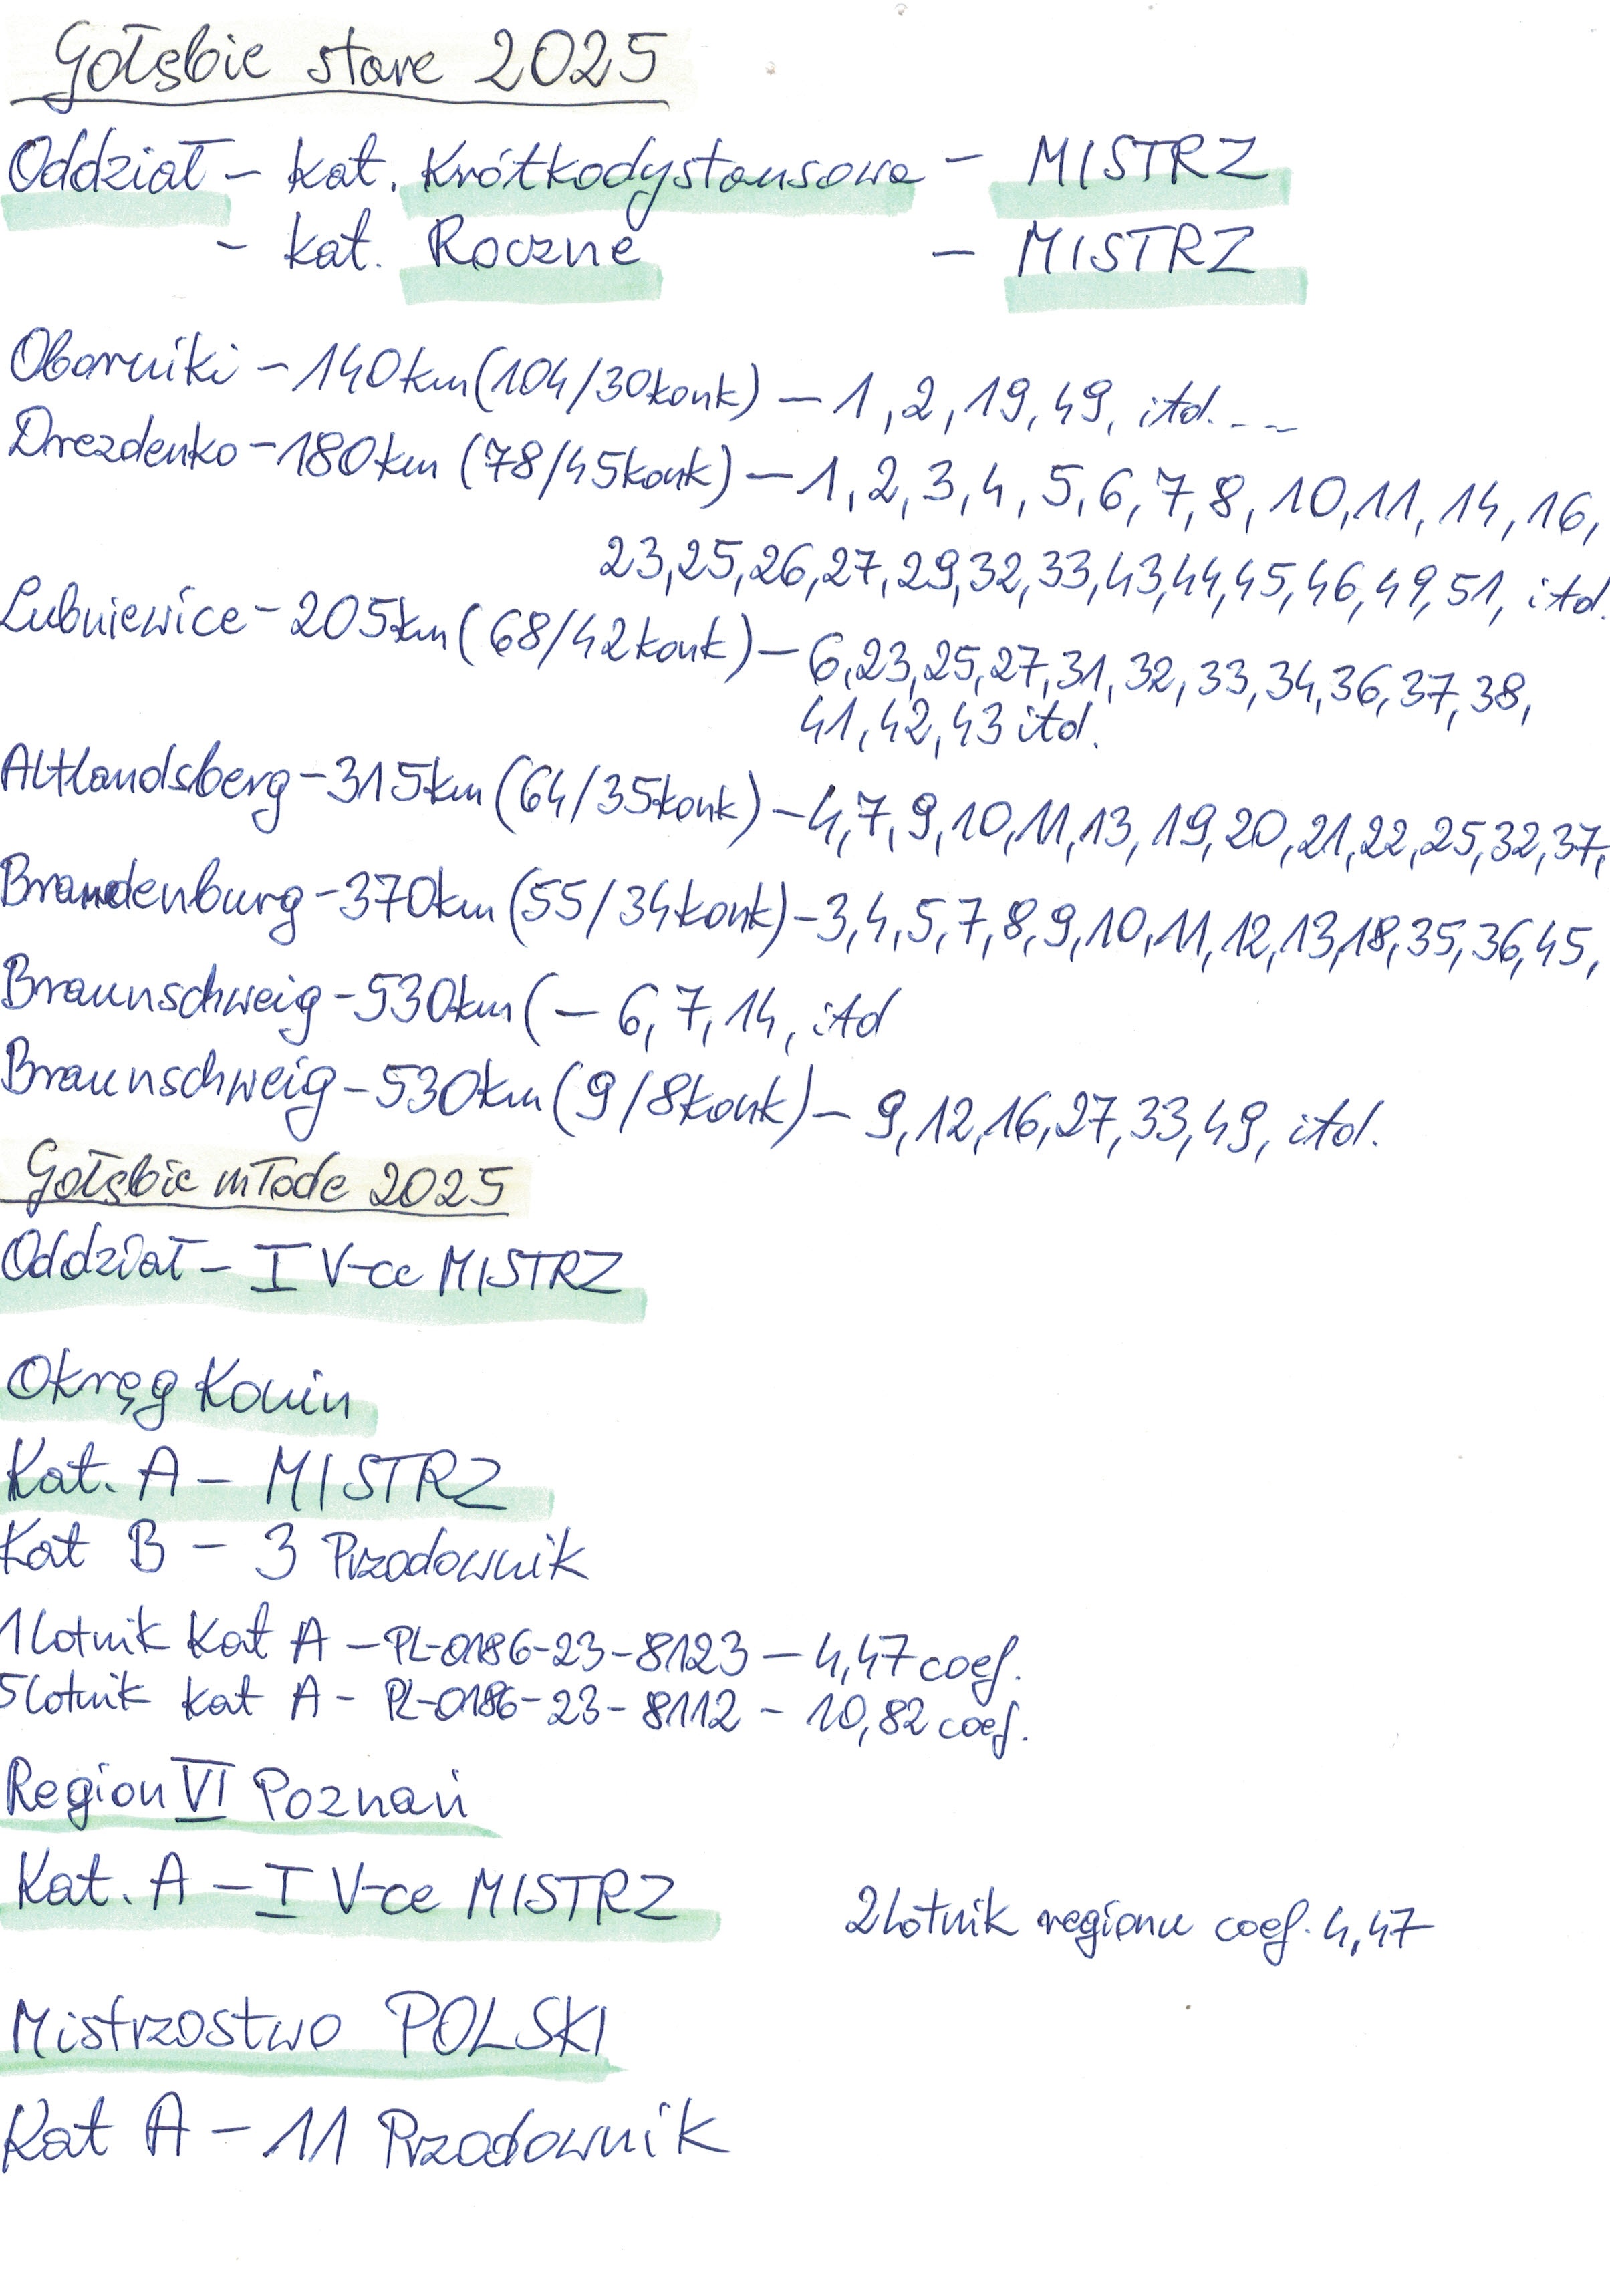 Gołębie stare 2025
Oddział - kat. Krótkodystansowa - MISTRZ
- kat. Roczne - MISTRZ
Oborniki - 140km (104/30konk) - 1, 2, 19, 49, itd. . - -
Drezdenko - 180km (78/45konk) - 1, 2, 3, 4, 5, 6, 7, 8, 10, 11, 14, 16,
23, 25, 26, 27, 29, 32, 33, 43, 44, 45, 46, 49, 51, itd.
Lubniewice - 205km (68/42konk) - 6, 23, 25, 27, 31, 32, 33, 34, 36, 37, 38,
41, 42, 43 itd.
Altlandsberg - 315km (64/35konk) - 4, 7, 9, 10, 11, 13, 19, 20, 21, 22, 25, 32, 37,
Brandenburg - 370km (55/34konk) - 3, 4, 5, 7, 8, 9, 10, 11, 12, 13, 18, 35, 36, 45,
Braunschweig - 530km ( - 6, 7, 14, itd
Braunschweig - 530km (9/8konk) - 9, 12, 16, 27, 33, 49, itd.
Gołębie młode 2025
Oddział - I V-ce MISTRZ
Okręg Konin
Kat. A - MISTRZ
Kat B - 3 Przodownik
1 lotnik Kat A - PL-0186-23-8123 - 4,47 coef.
5 lotnik kat A - PL-0186-23-8112 - 10,82 coef.
Region VI Poznań
Kat. A - I V-ce MISTRZ 2 Lotnik regionu coef. 4,47
Mistrzostwo POLSKI
Kat A - 11 Przodownik